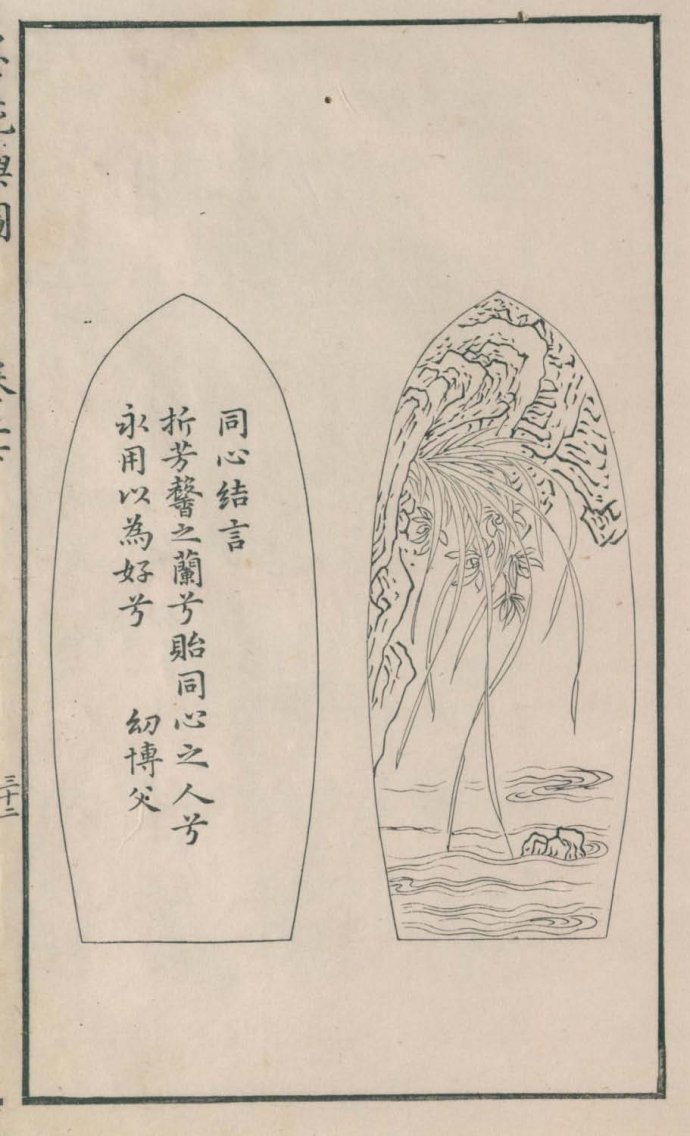 同心結言
折芳馨之蘭兮貽同心之人兮
永用以為好兮
幼博父
三十二